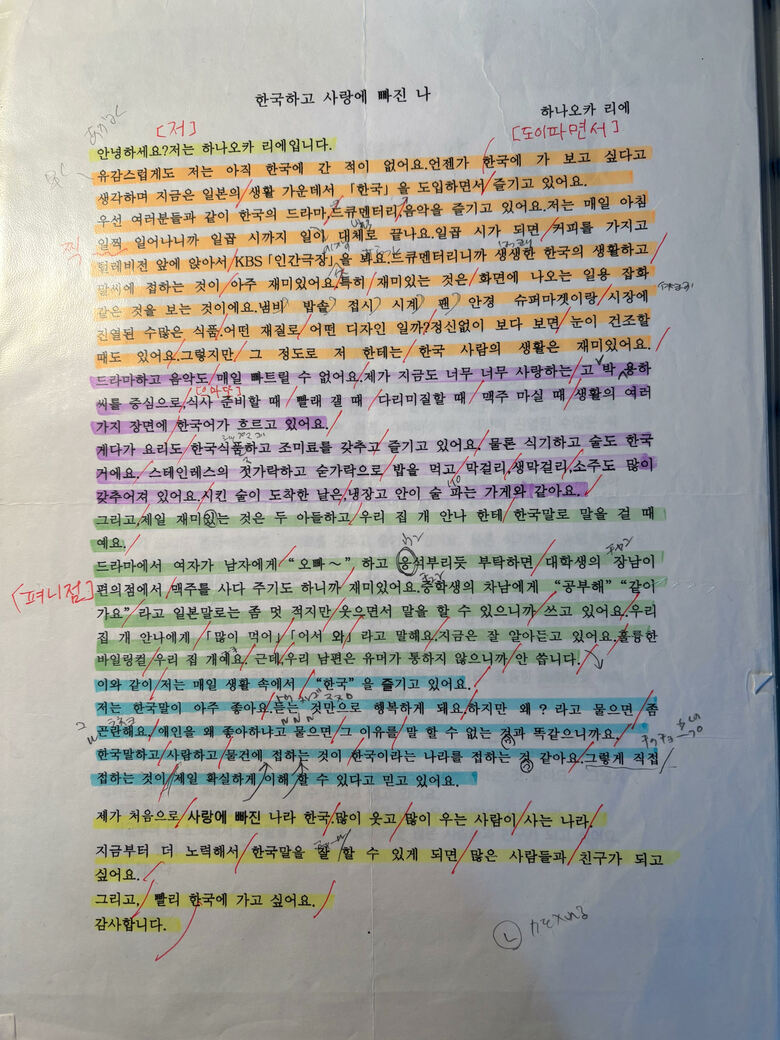 한국하고 사랑에 빠진 나
하나오카 리에
[저]
[도이파면서]
안녕하세요?저는 하나오카 리에입니다.
유감스럽게도 저는 아직 한국에 간 적이 없어요.언젠가 한국에 가 보고 싶다고
생각하며 지금은 일본의 생활 가운데서 「한국」을 도입하면서 즐기고 있어요.
우선 여러분들과 같이 한국의 드라마,드큐멘터리,음악을 즐기고 있어요.저는 매일 아침
찍
일찍 일어나니까 일곱 시까지 일이 대체로 끝나요.일곱 시가 되면 커피를 가지고
텔레비전 앞에 앉아서 KBS「인간극장」을 봐요.드큐멘터리니까 생생한 한국의 생활하고
말씨에 접하는 것이 아주 재미있어요.특히 재미있는 것은 화면에 나오는 일용 잡화
같은 것을 보는 것이에요.냄비 밥솥 접시 시계 펜 안경 슈퍼마켓이랑 시장에
진열된 수많은 식품.어떤 재질로 어떤 디자인 일까?정신없이 보다 보면 눈이 건조할
때도 있어요.그렇지만 그 정도로 저 한테는 한국 사람의 생활은 재미있어요.
드라마하고 음악도 매일 빠트릴 수 없어요.제가 지금도 너무 너무 사랑하는 고 박 용하
씨를 중심으로,식사 준비할 때 빨래 갤 때 다리미질할 때 맥주 마실 때 생활의 여러
가지 장면에 한국어가 흐르고 있어요.
게다가 요리도 한국식품하고 조미료를 갖추고 즐기고 있어요. 물론 식기하고 술도 한국
거에요. 스테인레스의 젓가락하고 숟가락으로 밥을 먹고 막걸리,생막걸리,소주도 많이
갖추어져 있어요.시킨 술이 도착한 날은,냉장고 안이 술 파는 가게와 같아요.
그리고,제일 재미있는 것은 두 아들하고 우리 집 개 안나 한테 한국말로 말을 걸 때
예요.
드라마에서 여자가 남자에게 “오빠～” 하고 응석부리듯 부탁하면 대학생의 장남이
[펴니점]
편의점에서 맥주를 사다 주기도 하니까 재미있어요.중학생의 차남에게 “공부해” “같이
가요” 라고 일본말로는 좀 멋 적지만 웃으면서 말을 할 수 있으니까 쓰고 있어요.우리
집 개 안나에게 「많이 먹어」「어서 와」라고 말해요.지금은 잘 알아듣고 있어요.훌륭한
바일링컬 우리 집 개예요. 근데,우리 남편은 유머가 통하지 않으니까 안 씁니다.
이와 같이 저는 매일 생활 속에서 “한국”을 즐기고 있어요.
저는 한국말이 아주 좋아요.듣는 것만으로 행복하게 돼요.하지만 왜？라고 물으면 좀
곤란해요.애인을 왜 좋아하냐고 물으면 그 이유를 말 할 수 없는 것과 똑같으니까요.
한국말하고 사람하고 물건에 접하는 것이 한국이라는 나라를 접하는 것 같아요.그렇게 직접
접하는 것이 제일 확실하게 이해 할 수 있다고 믿고 있어요.
제가 처음으로 사랑에 빠진 나라 한국.많이 웃고 많이 우는 사람이 사는 나라.
지금부터 더 노력해서 한국말을 잘 할 수 있게 되면 많은 사람들과 친구가 되고
싶어요.
그리고, 빨리 한국에 가고 싶어요.
감사합니다.